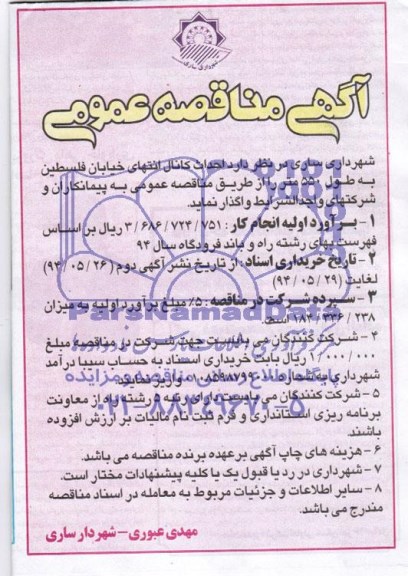 شهرداری ساری
آگهی مناقصه عمومی
شهرداری ساری در نظر دارد احداث کانال انتهای خیابان فلسطین
به طول ۵۵۰ متر را از طریق مناقصه عمومی به پیمانکاران و
شرکتهای واجد الشرایط واگذار نماید.
۱ - برآورد اولیه انجام کار : ۳/۶۸۶/۷۲۴/۷۵۱ ریال بر اساس
فهرست بهای رشته راه و باند فرودگاه سال ۹۴
۲ - تاریخ خریداری اسناد : از تاریخ نشر آگهی دوم (۹۴/۰۵/۲۶)
لغایت (۹۴/۰۵/۲۹)
۳ - سپرده شرکت در مناقصه : ۵٪ مبلغ برآورد اولیه به میزان
۱۸۴/۳۳۶/۲۳۸ است.
۴ - شرکت کنندگان می بایست جهت شرکت در مناقصه مبلغ
۱/۰۰۰/۰۰۰ ریال بابت خریداری اسناد به حساب سیبا درآمد
شهرداری به شماره واریز نمایند.
۵ - شرکت کنندگان می بایست دارای رتبه ۵ رشته راه از معاونت
برنامه ریزی استانداری و فرم ثبت نام مالیات بر ارزش افزوده
باشند
۶ - هزینه های چاپ آگهی بر عهده برنده مناقصه می باشد.
۷ - شهرداری در رد یا قبول یک یا کلیه پیشنهادات مختار است.
۸ - سایر اطلاعات و جزئیات مربوط به معامله در اسناد مناقصه
مندرج می باشد.
مهدی عبوری - شهردار ساری
ParsNamadData
پایگاه اطلاع رسانی مناقصه و مزایده
۰۲۱-۸۸۳۴۹۶۷۰-۵